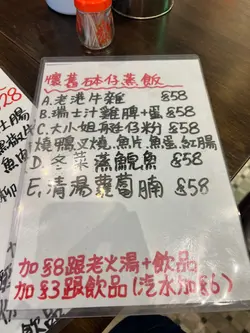 懷舊砵仔蒸飯
A.老港牛雜 $58
B.瑞士汁雞脾+蛋 $58
C.大小姐車仔粉 $58
燒鴨叉燒,魚片,魚蛋,紅腸
D.冬菜蒸鯇魚 $58
E.清湯蘿蔔腩 $58
加$8跟老火湯+飲品
加$3跟飲品(汽水加$6)
28